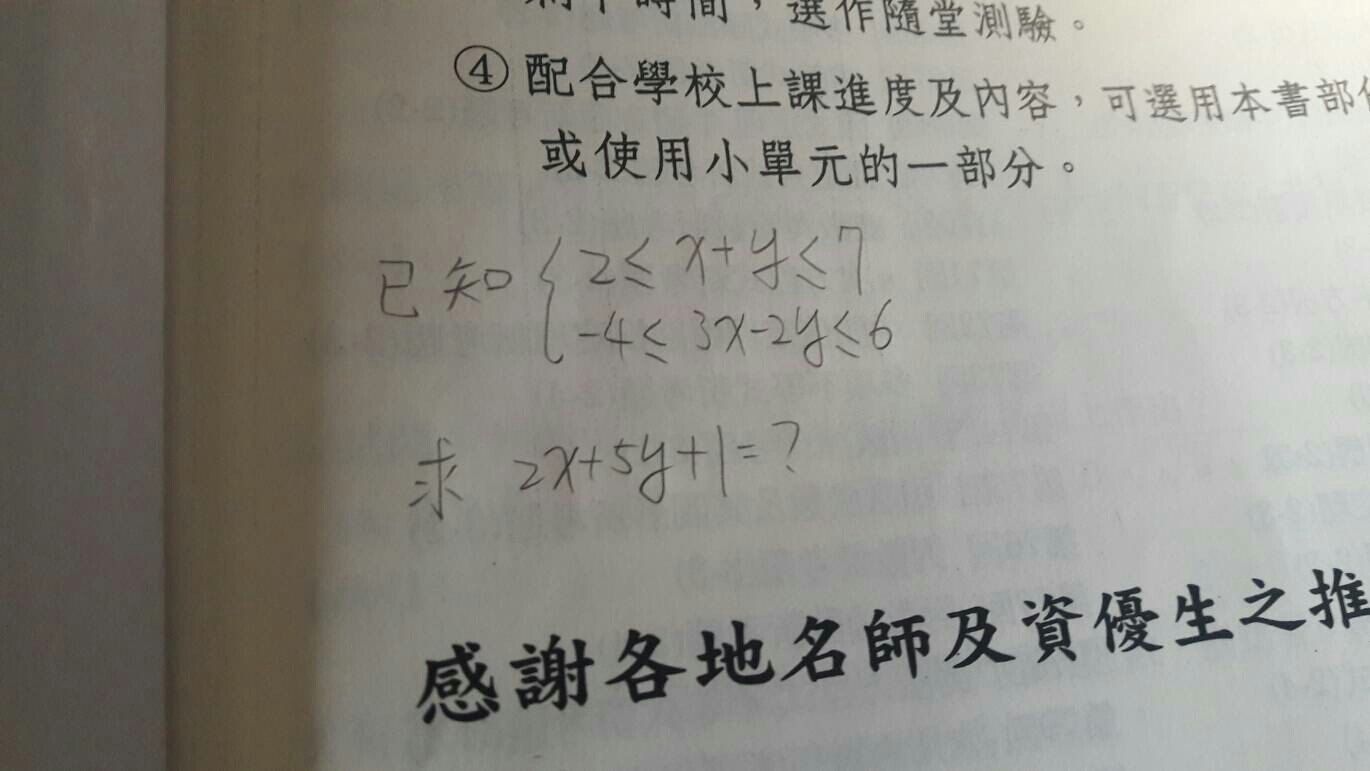 時間，選作隨堂測驗。
④配合學校上課進度及內容，可選用本書部
或使用小單元的一部分。
已知{2≤x+y≤7
-4≤3x-2y≤6
求 2x+5y+1=?
感謝各地名師及資優生之推